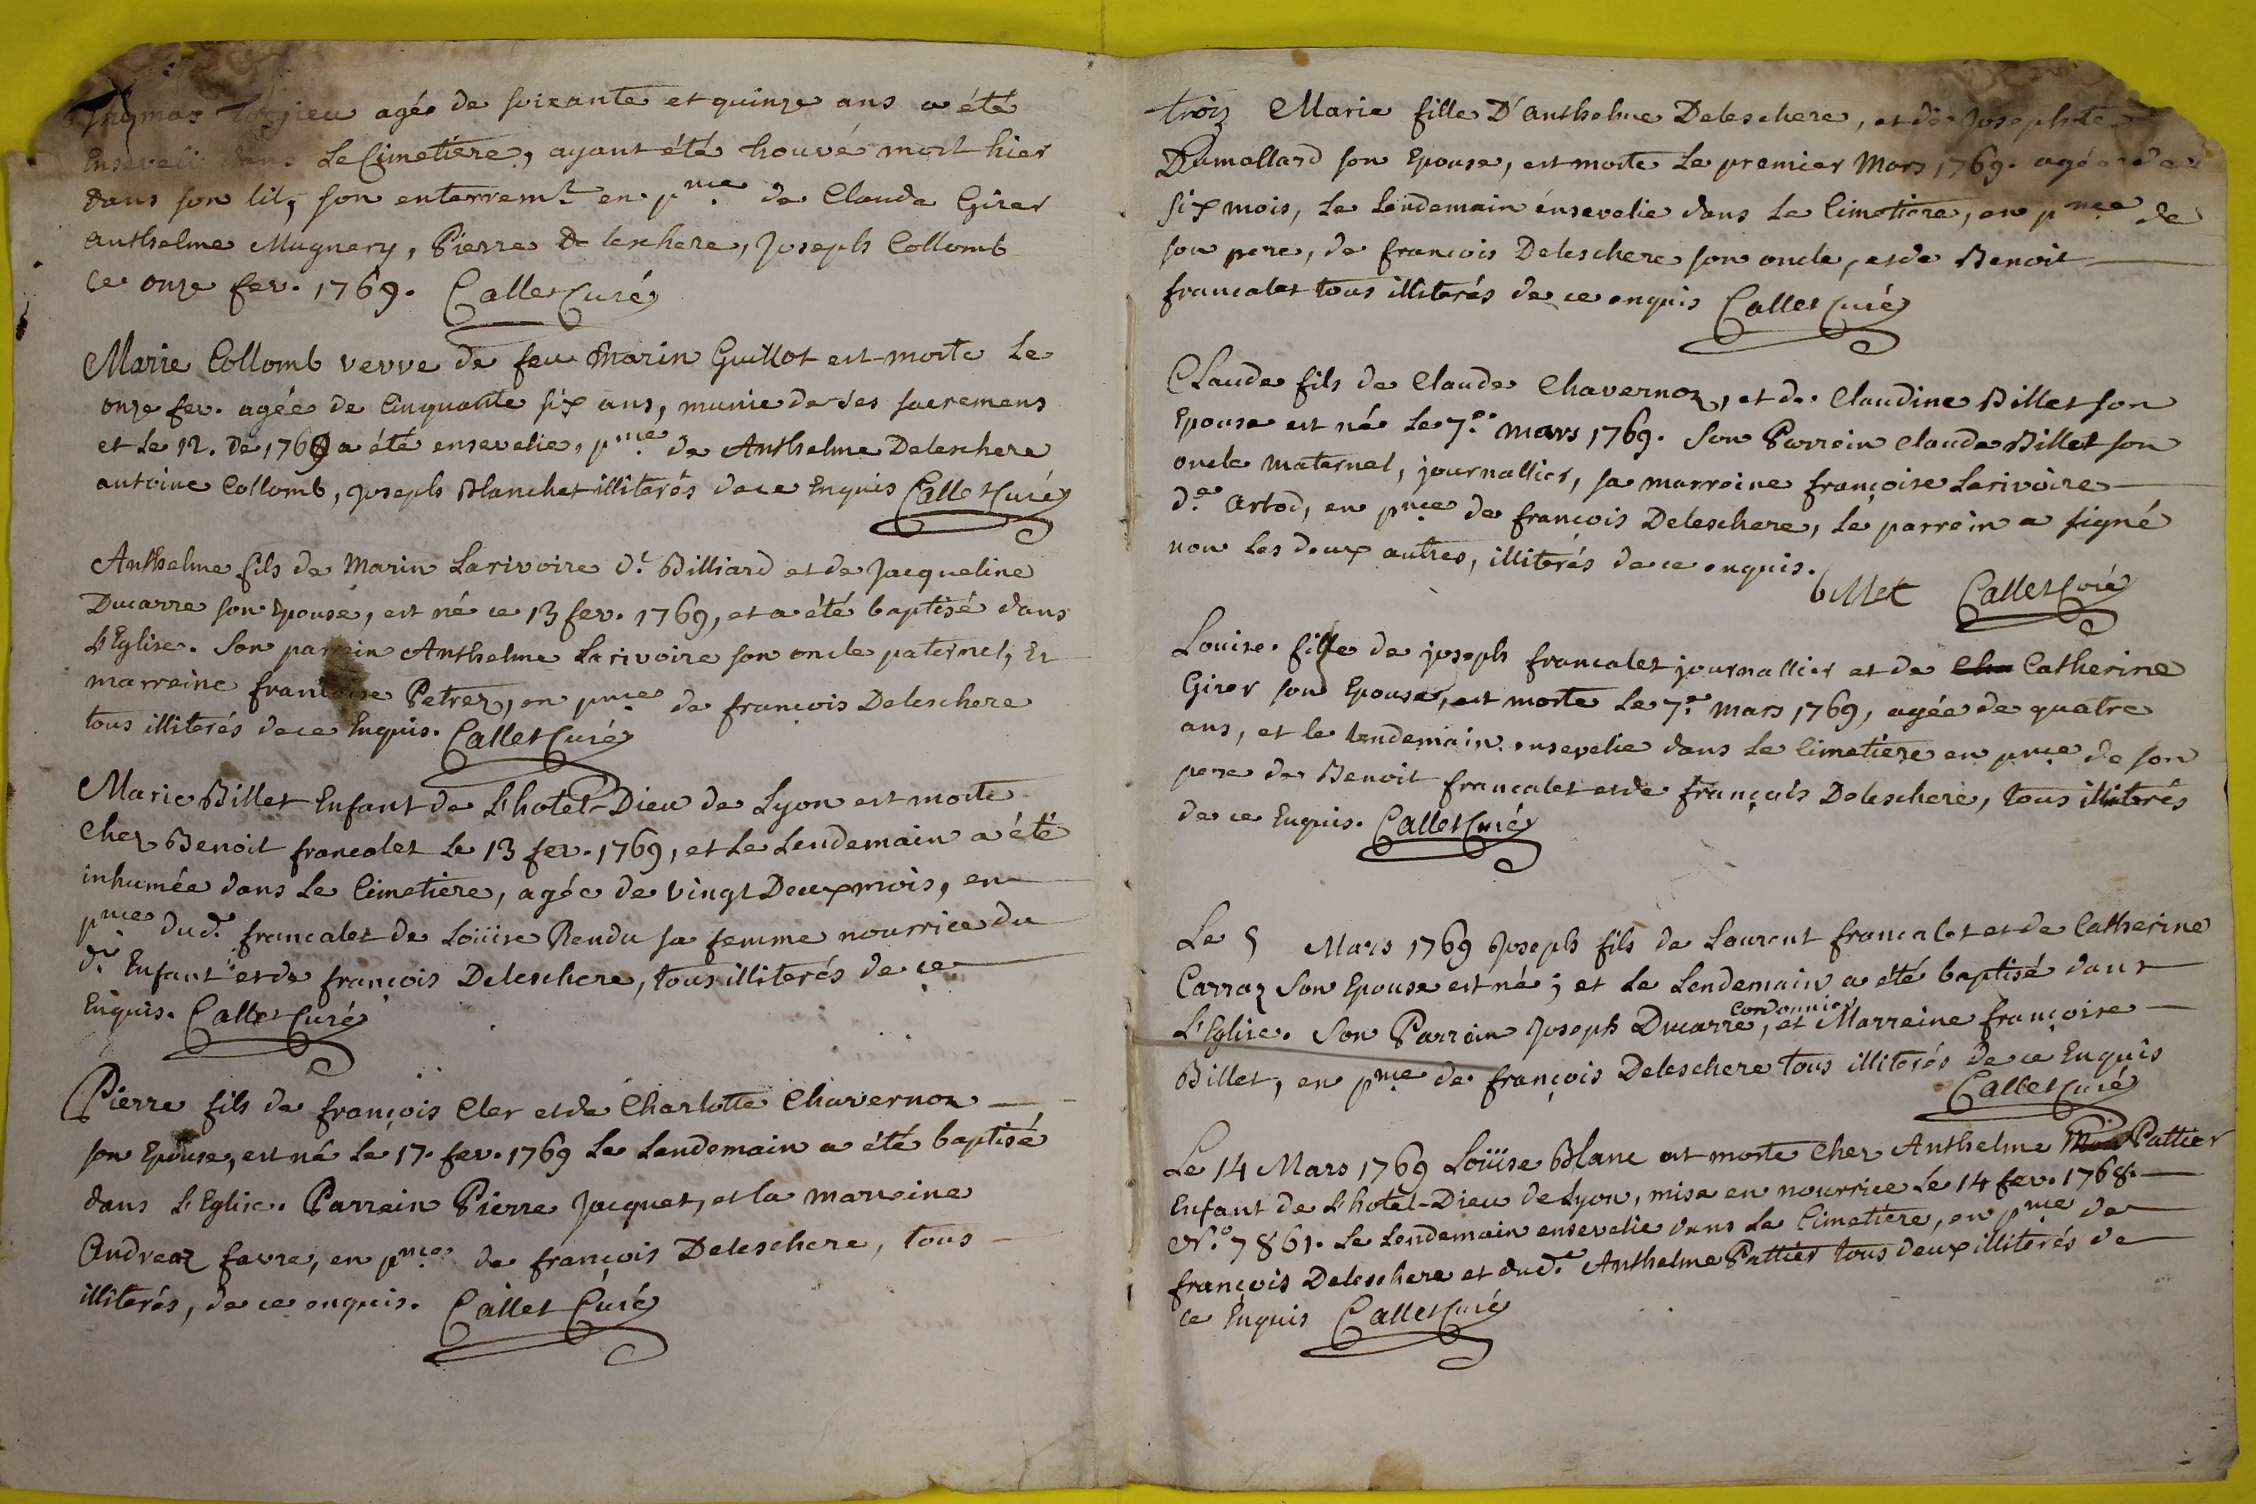 Thomas agée de soixante et quinze ans a été
Enseveli dans Le Cimetière, ayant été trouvé mort hier
dans son lit, son enterremt en pnce de Claude Girer
anthelme Mugnery, Pierre Deleschere, Joseph Collomb
Ce onze fev. 1769. Callet Curé
Marie Collomb verve de feu Marin Guillot est morte Le
onze fev. agée de Cinquante six ans, munie de ses sacremens
et Le 12. De 1769 a été ensevelie, pnce de Anthelme Deleschere
antoine Collomb, Joseph Blanchet illiterés de ce Enquis Callet Curé
Anthelme fils de Marin Larivoire dt Billiard et de Jacqueline
Ducarre son Epouse, est né ce 13 fev. 1769, et a été baptisé dans
L'Eglise. Son parrein Anthelme Larivoire son oncle paternel, Et
marreine francoise Petrez, en pnce de françois Deleschere
tous illiterés de ce Enquis. Callet Curé
Marie Billet Enfant de L'hotel-Dieu de Lyon est morte
Chez Benoit francalet Le 13 fev. 1769, et Le Lendemain a été
inhumée dans Le Cimetière, agée de vingt Deux mois, en
pnce dud. francalet de Loüise Rendu sa femme nourrice du
dt Enfant et de françois Deleschere, tous illiterés de ce
Enquis. Callet Curé
Pierre fils de françois Cler et de Charlotte Chavernoz
son Epouse, est né Le 17. fev. 1769 Le Lendemain a été baptisé
dans L'Eglise. Parrein Pierre Jacquet, et la marreine
Andreaz favre, en pnce de françois Deleschere, tous
illiterés, de ce enquis. Callet Curé
troiz Marie fille D'anthelme Deleschere, et de Josephte
Dumollard son Epouse, est morte Le premier Mars 1769. agée de
six mois, Le Lendemain énsevelie dans Le Cimetière, en pnce de
son pere, de françois Deleschere son oncle, et de Benoit
francalet tous illiterés de ce enquis Callet Curé
Claude fils de Claude Chavernoz, et de Claudine Billet son
Epouse est né Le 7e mars 1769. Son Parrein Claude Billet son
oncle maternel, journallier, sa marreine françoise Larivoire
de Artod, en pnce de françois Deleschere, Le parrein a signé
non Les deux autres, illiterés de ce enquis.
billet Callet Curé
Louise fille de joseph francalet journallier et de Cha Catherine
Girer son Epouse, est morte Le 7e Mars 1769, agée de quatre
ans, et le Lendemain ensevelie dans Le Cimetière en pnce de son
pere de Benoit francalet et de françois Deleschere, tous illiterés
de ce Enquis. Callet Curé
Le 5 Mars 1769 Joseph fils de Laurent francalet et de Catherine
Carraz Son Epouse est né ; et Le Lendemain a été baptisé dans
Cordonnier
L'Eglise. Son Parrein Joseph Ducarre, et Marreine françoise
Billet, en pnce de françois Deleschere tous illiterés de ce Enquis
Callet Curé
Le 14 Mars 1769 Loüise Blanc est morte Chez Anthelme Pattier
Enfant de L'hotel-Dieu de Lyon, mise en nourrice Le 14 fev. 1768.
No. 7861. Le Lendemain ensevelie dans Le Cimetière, en pnce de
françois Deleschere et dud. Anthelme Pattier tous deux illiterés de
ce Enquis Callet Curé